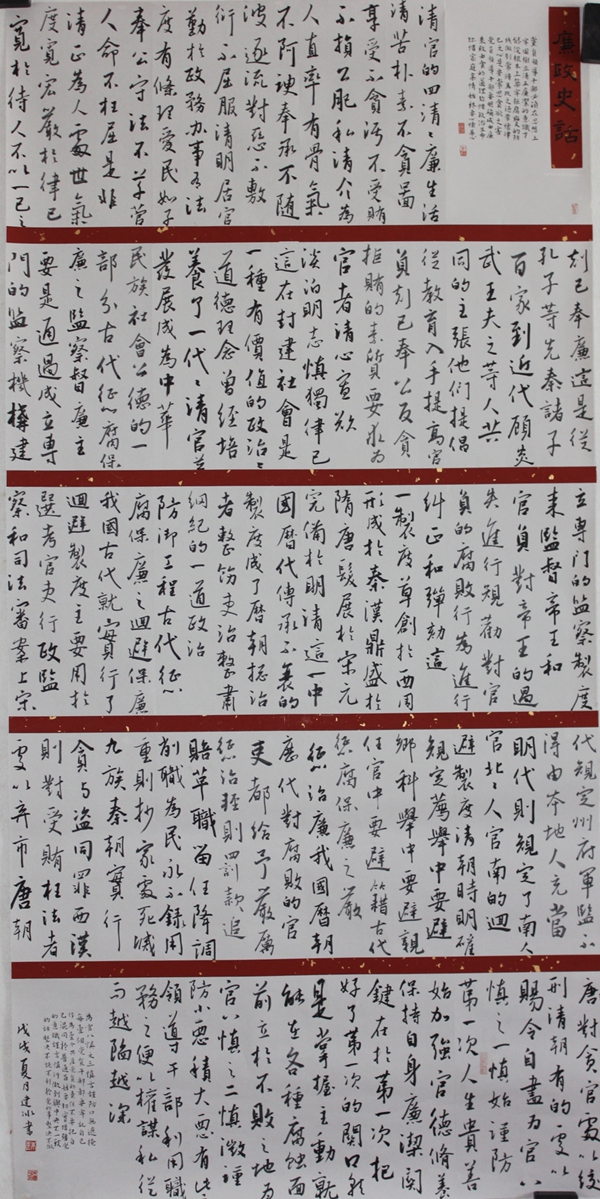 廉政史話
清官的四清〻廉生活
清苦朴素不貪圖
享受不貪污不受賄
不損公肥私清介為
人直率有骨氣
不阿諛奉承不隨
波逐流對惡不敷
衍不屈服清明居官
勤於政務办事有法
度有條理愛民如子
奉公守法不草菅
人命不枉屈是非
清正為人處世氣
度寬宏嚴於律己
寬於待人不以一己之
刻己奉廉這是從
孔子等先秦諸子
百家到近代顧炎
武王夫之等人共
同的主張他們提倡
從教育入手提高官
員刻己奉公反貪
拒賄的素質要求為
官者清心寡欲
淡泊明志慎獨律己
這在封建社會是
一種有價值的政治〻
道德理念曾經培
養了一代〻清官並
發展成為中華
民族社會公德的一
部分古代惩腐保
廉之監察督廉主
要是通過成立專
門的監察機構建
立專門的監察製度
来監督帝王和
官員對帝王的過
失進行規勸對官
員的腐敗行為進行
糾正和彈劾這
一製度草創於西周
形成於秦漢鼎盛於
隋唐髮展於宋元
完備於明清這一中
國曆代傳承不衰的
製度成了曆朝捴治
者整飭吏治整肅
綱紀的一道政治
防御工程古代惩
腐保廉之迴避保廉
我國古代就實行了
迴避製度主要用於
選考官吏行政監
察和司法審案上宋
代規定州府軍監不
得由本地人充當
明代則規定了南人
官北〻人官南的迴
避製度清朝時明確
規定薦舉中要避
鄉科舉中要避親
任官中要避籍古代
惩腐保廉之嚴
惩治廉我國曆朝
曆代對腐敗的官
吏都給予嚴厲
惩治輕則罰款追
賠革職留任降調
削職為民永不錄用
重則抄家處死滅
九族秦朝實行
貪与盜同罪西漢
則對受賄枉法者
處以弃市唐朝
唐對貪官處以絞
刑清朝有的處以
賜令自盡為官八
慎之一慎始謹防
第一次人生貴善
始加強官德修養
保持自身廉潔関
鍵在於第一次把
好了第一次的関口就
是掌握主動就
能在各種腐蝕面
前立於不敗之地為
官八慎之二慎微謹
防小惡積大惡有些
領導干部利用職
務之便以權謀私從
而越陷越深
戊戌夏月建冰書